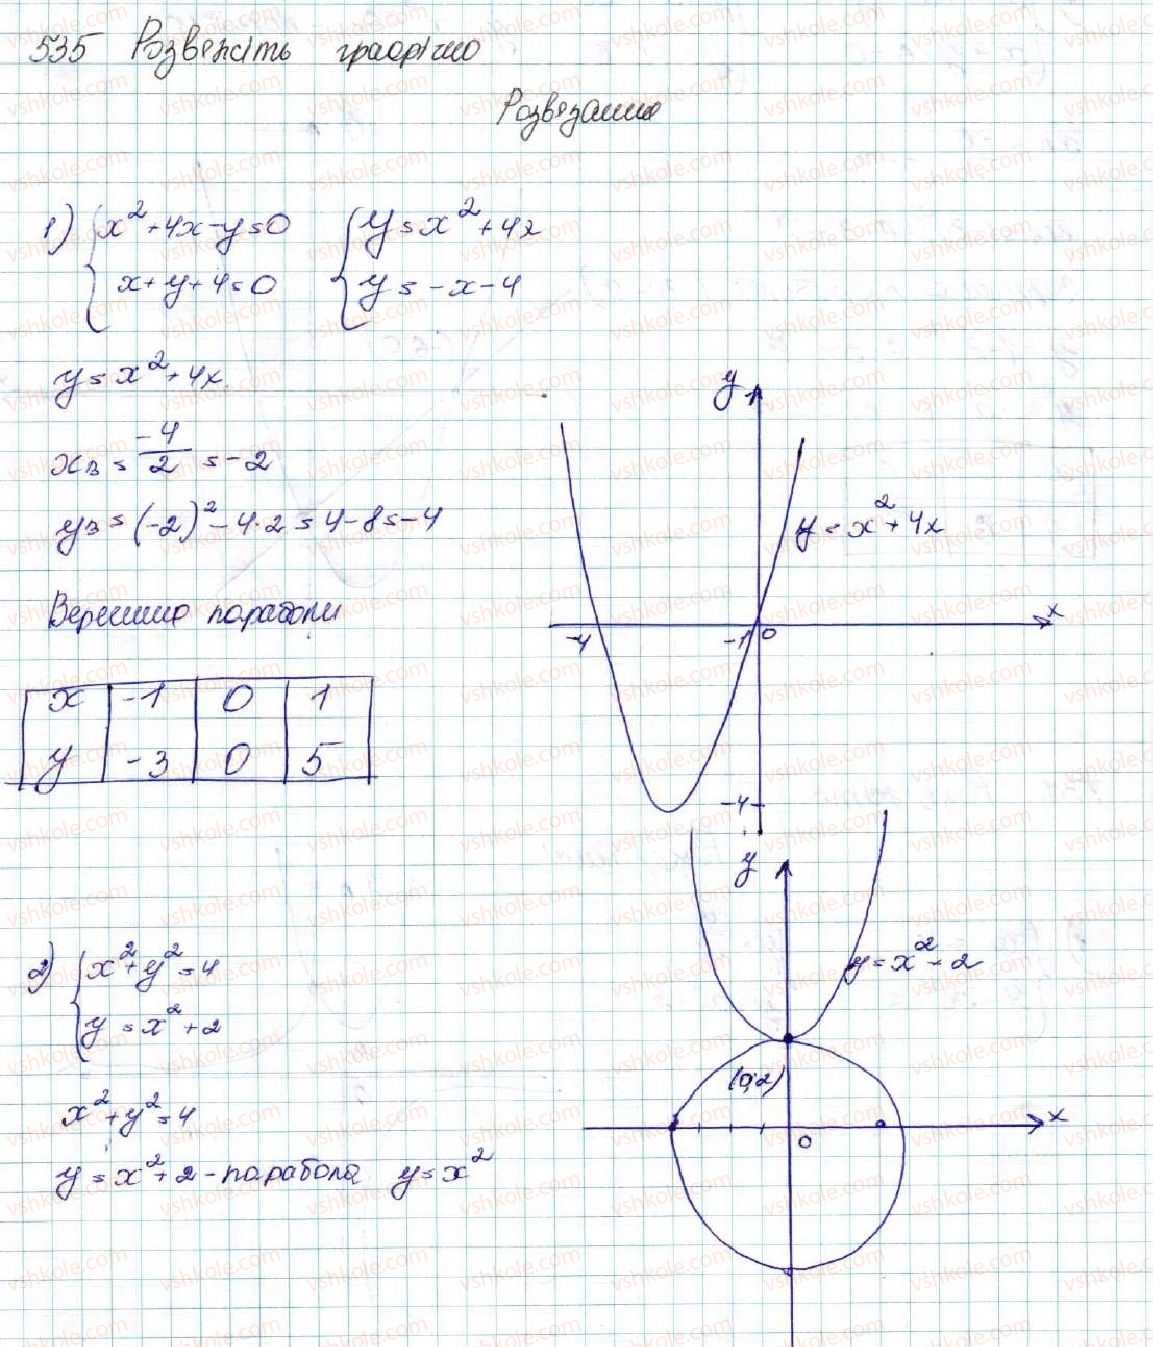 535 Розвяжіть графічно
Розвязання
1) { x² + 4x - y = 0 { y = x² + 4x
x + y + 4 = 0 y = -x - 4
y = x² + 4x
xв = -4/2 = -2
yв = (-2)² - 4·2 = 4 - 8 = -4
Вершина параболи
x -1 0 1
y -3 0 5
y
y = x² + 4x
-4 -1 0 x
-4
2) { x² + y² = 4
y = x² + 2
x² + y² = 4
y = x² + 2 - парабола y = x²
y
y = x² - 2
(0;2)
0 x
vshkole.com